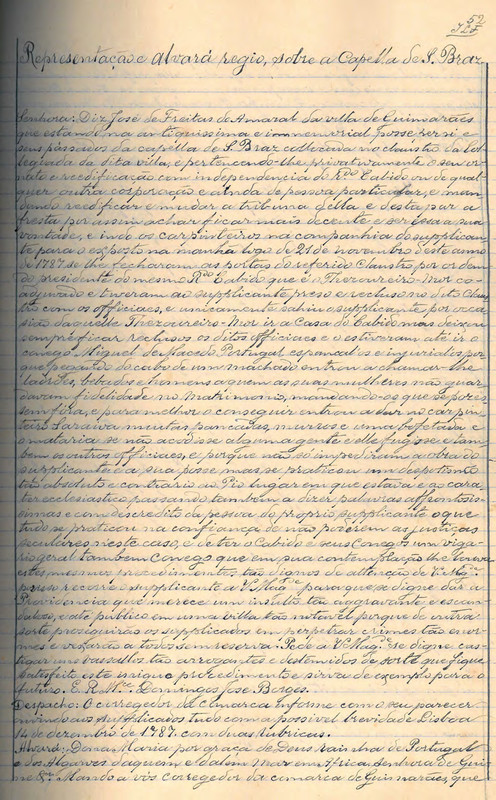 52
Representação e alvará regio, sobre a Capella de S. Braz
Senhora: Diz José de Freitas do Amaral da villa de Guimarães
que estando na antiquissima e immemorial posse per si e
seus passados da capella de S. Braz collocada no claustro da Col-
legiada da dita villa, e pertencendo-lhe privativamente o seu or-
nato e reedificação com independencia do Rdo Cabido ou de qual-
quer outra corporação e ainda de pessoa particular, e man-
dando reedificar e mudar a tribuna della e destapar a
fresta por assim achar ficar mais decente e ser essa a sua
vontade, e indo os carpinteiros na companhia do supplican-
te para o exposto na manhã logo de 21 de novembro deste anno
de 1787 se lhe fecharam as portas do referido Claustro por ordem
do presidente do mesmo Rdo Cabido que é o Thezoureiro-Mor co-
adjuvado e tiveram ao supplicante preso e recluso no dito Claus-
tro com os officiaes, e unicamente sahiu o supplicante por occa-
sião daquelle Thezoureiro-Mor ir a Casa do Cabido mas deixou
sempre ficar reclusos os ditos officiaes e o estiveram até ir o
conego Miguel de Macedo Portugal espancal-os e injurial-os por
que pegando do cabo de um machado entrou a chamar-lhe
ladrões, bebados e homens a quem as suas mulheres não guar-
davam fidelidade no matrimonio, mandando-os que se pozes-
sem fóra, e para melhor o conseguir entrou a dar no carpin-
teiro Saraiva muitas pancadas, murros e uma bofetada e
o mataria se não acodisse alguma gente e elle fugisse e tam-
bem os outros officiaes, e porque não só impediram a obra do
supplicante da sua posse mas se praticou um despotismo
tão absoluto e contrario ao Pio lugar em que estava e ao cara-
ter ecclesiastico passando tambem a dizer palavras affrontosis-
simas e com descredito da pessoa do proprio supplicante o que
tudo se praticou na confiança de não poderem as justiças
seculares neste caso, e de ter o Cabido e seus Conegos um viga-
rio geral tambem Conego que em sua contemplação lhe tolera
estes mesmos procedimentos tão dignos de attenção de V. Mag.de
por isso recorre o supplicante a V. Mag.de para que se digne dar a
Providencia que merece um insulto tão aggravante e escan-
daloso, e até publico em uma villa tão notavel porque de outra
sorte proseguirão os supplicados em perpetrar crimes tão enor-
mes e vexarão a todos sem reserva: Pede a V. Mag.de se digne cas-
tigar uns vassallos tão arrogantes e destemidos de sorte que fique
satisfeito este iniquo procedimento e sirva de exemplo para o
futuro. E. R. M.ce Domingos José Borges.
Despacho: O corregedor da comarca informe com seu parecer
ouvindo aos supplicados tudo com a possivel brevidade Lisboa
14 de dezembro de 1787. com duas rubricas.
Alvará: Dona Maria por graça de Deus rainha de Portugal
e dos Algarves daquem e dalem mar em Africa, Senhora de Gui-
né &.a Mando a vós corregedor da comarca de Guimarães, que